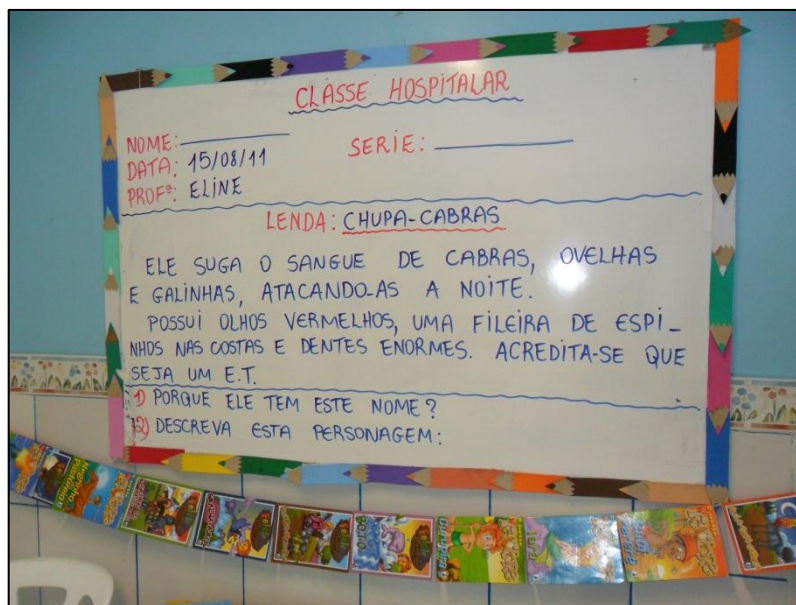 CLASSE HOSPITALAR
NOME: SERIE:
DATA: 15/08/11
PROFª: ELINE
LENDA: CHUPA-CABRAS
ELE SUGA O SANGUE DE CABRAS, OVELHAS
E GALINHAS, ATACANDO-AS A NOITE.
POSSUI OLHOS VERMELHOS, UMA FILEIRA DE ESPI-
NHOS NAS COSTAS E DENTES ENORMES. ACREDITA-SE QUE
SEJA UM E.T.
1) PORQUE ELE TEM ESTE NOME?
2) DESCREVA ESTA PERSONAGEM: